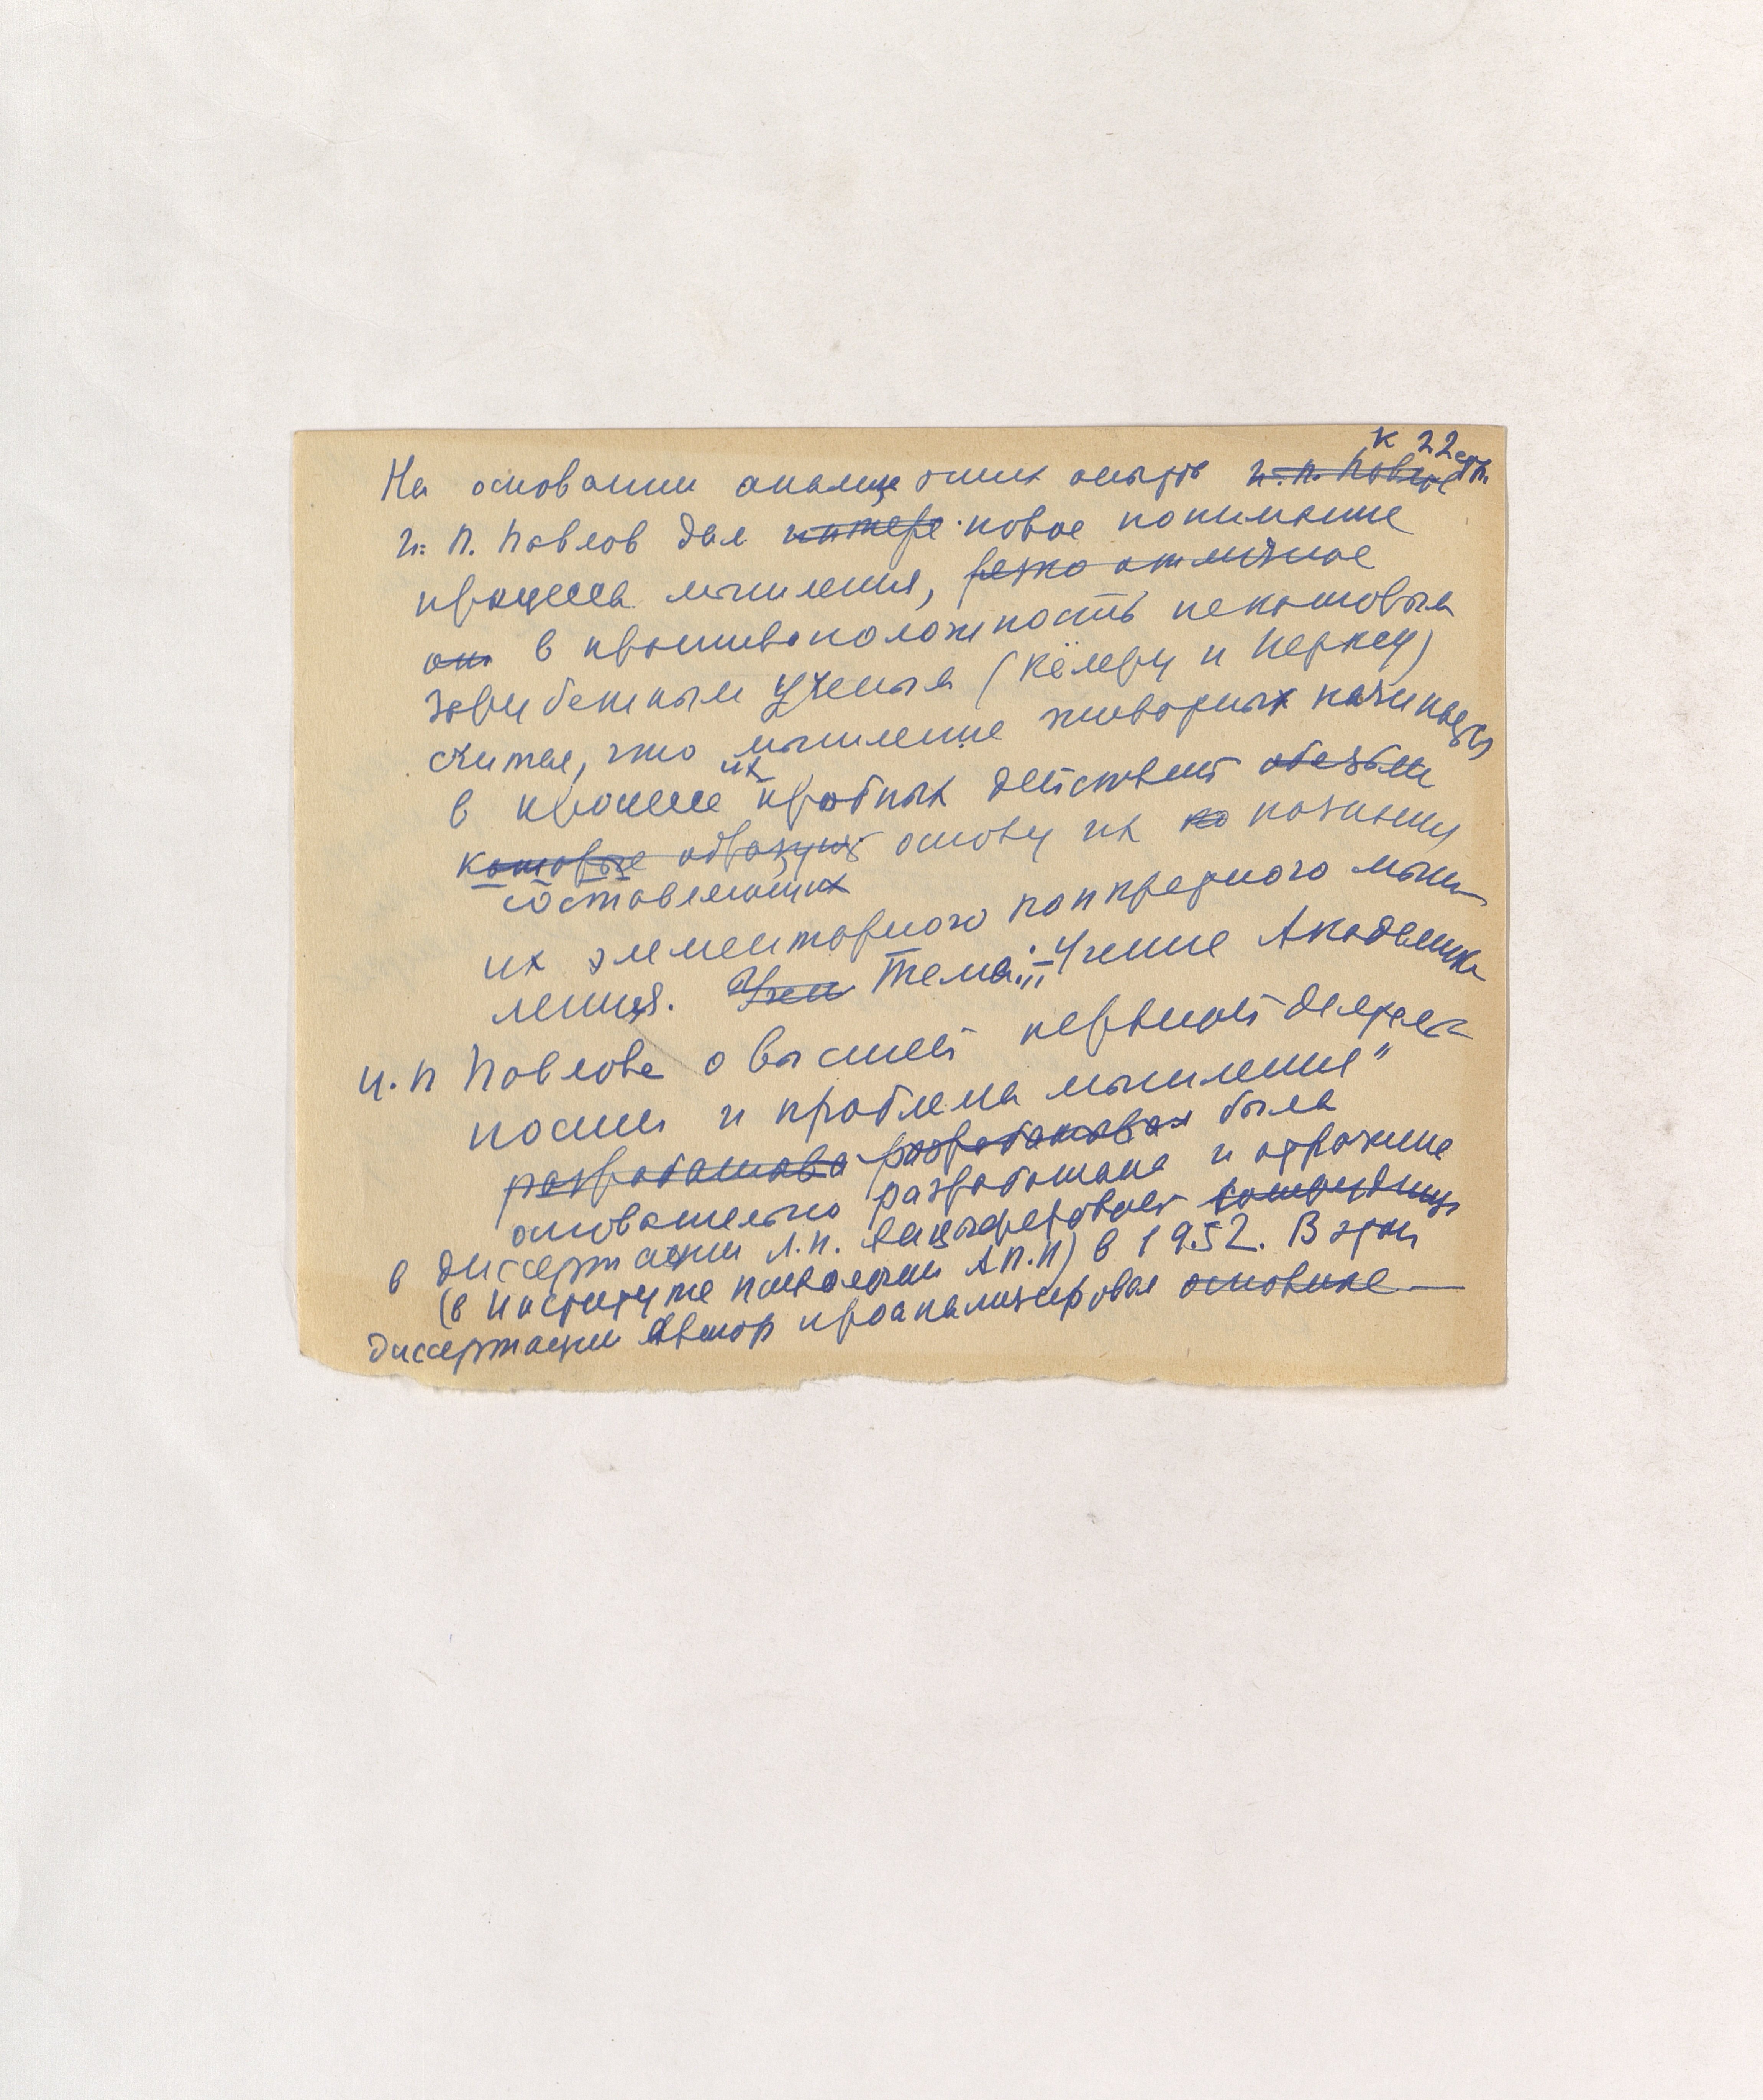 к 22 стр.
На основании анализа этих опытов И. П. Павлов
И. П. Павлов дал интере новое понимание
процесса мышления, резко отличное
он в противоположность некоторым
зарубежным ученым (Кёлеру и Иерксу)
считал, что мышление животных начинается
в процессе их пробных действий обезьян
которые образуют основу их по познания
составляющих
их элементарного конкретного мыш-
ления. Учен Тема: „Учение Академика
И. П Павлова о высшей нервной деятель-
ности и проблема мышления"
разработана разработанная была
основательно разработана и отражена
в диссертации Л. П. сотрудницы
(в Институте психологии АПН) в 1952. В этой
диссертации Автор проанализировал основные —